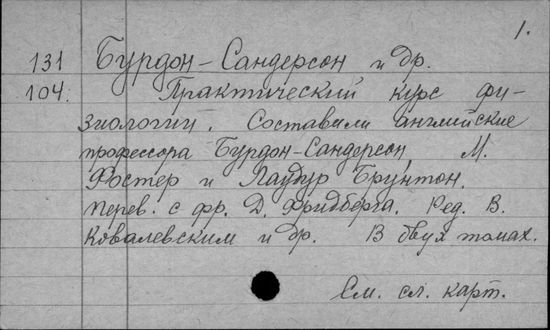 1.
131 Бурдон-Сандерсон и др.
104. Практический курс фи-
зиологии. Составили английские
профессора Бурдон-Сандерсон, М.
Фостер и Лаудур Брунтон.
Перев. с фр. Д. Фридберга. Ред. В.
Ковалевским и др. В двух томах.
См. сл. карт.